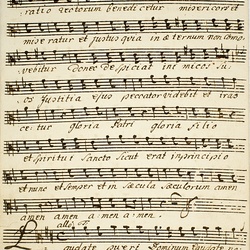 ratio rectorum benedicetur misericors et
miseratur et justus quia in æternum non como
vebitur donec despiciat inimicos su
os Justitia ejus peccator videbit et iras
cetur gloria Patri gloria Filio
et spiritui Sancto Sicut erat in principio
et nunc et semper et in sæcula sæculorum amen
amen amen a men a men.
allo
Laudate pueri Dominum laudate no